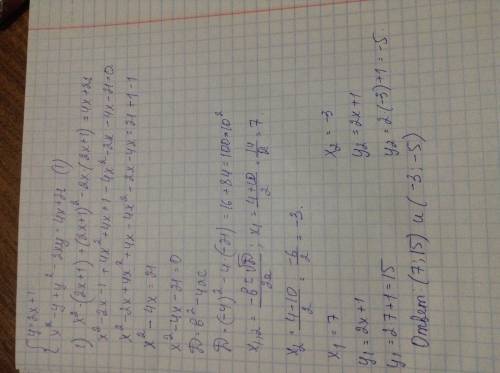 { y=2x+1
{ x² - y + y² - 2xy = 4x + 22 (1)
1) x² - (2x+1) + (2x+1)² - 2x(2x+1) = 4x+21
x² - 2x - 1 + 4x² + 4x + 1 - 4x² - 2x - 4x - 21 = 0
x² - 2x + 4x² + 4x - 4x² - 2x - 4x = 21 + 1 - 1
x² - 4x = 21
x² - 4x - 21 = 0
D = b² - 4ac
D = (-4)² - 4(-21) = 16 + 84 = 100 = 10²
x₁,₂ = -b ± √D / 2a ; x₁ = 4+10 / 2 = 14 / 2 = 7
x₂ = 4-10 / 2 = -6 / 2 = -3.
x₁ = 7 x₂ = -3
y₁ = 2x+1 y₂ = 2x+1
y₁ = 2·7+1 = 15 y₂ = 2(-3)+1 = -5
Ответ (7; 15) и (-3; -5)